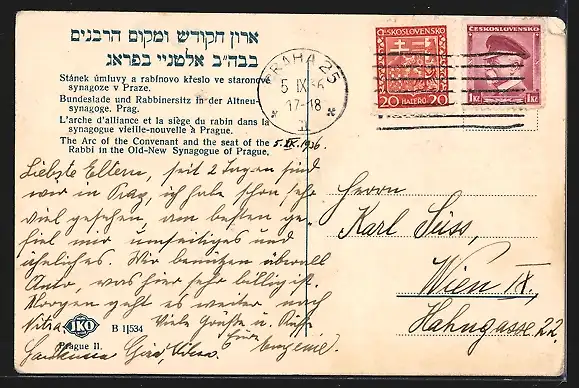 ארון הקודש ומקום הרבנים
בבה״ב אלטניי בפראג
Stánek úmluvy a rabínovo křeslo ve staronové
synagoze v Praze.
Bundeslade und Rabbinersitz in der Altneu-
synagoge. Prag.
L'arche d'alliance et la siège du rabin dans la
synagogue vieille-nouvelle à Prague.
The Arc of the Convenant and the seat of the
Rabbi in the Old-New Synagogue of Prague.
5.IX.1936.
ČESKOSLOVENSKO
20 HALÉŘŮ 20
ČESKOSLOVENSKO
1Kč
PRAHA 25
5 IX 36
17-18
Liebste Eltern, seit 2 Tagen sind
wir in Prag, ich habe schon sehr
viel gesehen, am besten ge-
fiel mir
ähnliches. Wir benützen überall
Auto, was hier sehr billig ist.
Morgen geht es weiter nach
Nitra. Viele Grüße u. Küsse
Herrn
Karl Süss,
Wien IX,
Hahngasse 22.
IKO
B 1|534
Prague II.